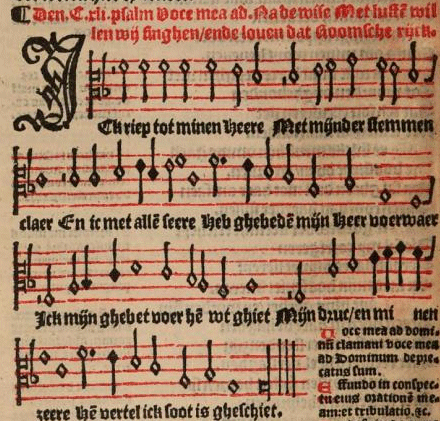 ¶ Den. C. xli. psalm Voce mea ad. Na de wise Met lustē wil
len wij singhen/ende louen dat Roomsche rijck.
ICk riep tot minen Heere Met mijnder stemmen
claer En ic met allē seere Heb ghebedē mijn Heer voerwaer
Ick mijn ghebet voer hē wt ghiet Mijn druc/en mi nen
zeere Hē vertel ick soot is gheschiet.
Voce mea ad domi-
nū clamaui voce mea
ad Dominum depre-
catus sum.
Effundo in conspec-
tu eius orationē me-
am: et tribulatiō. &c.